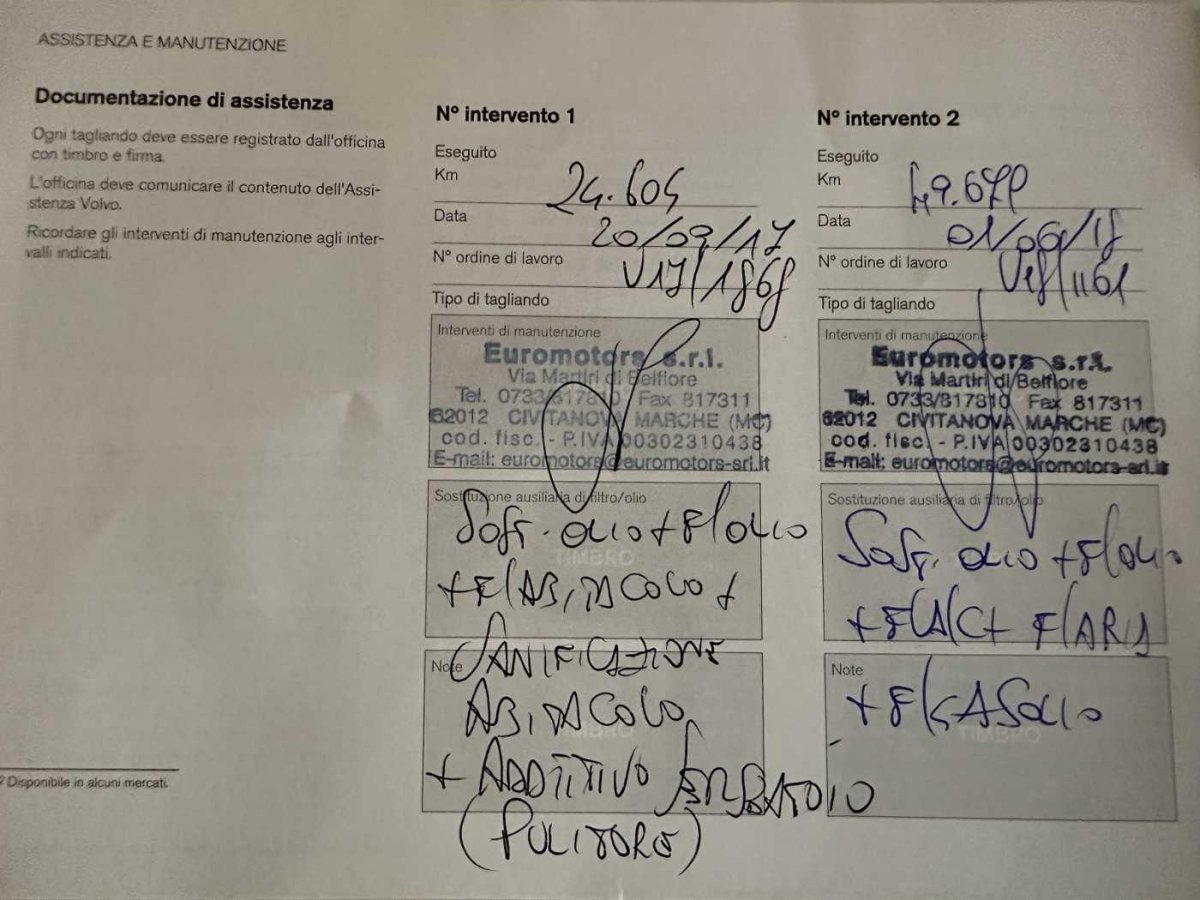 ASSISTENZA E MANUTENZIONE
Documentazione di assistenza
Ogni tagliando deve essere registrato dall'officina
con timbro e firma.
L'officina deve comunicare il contenuto dell'Assi-
stenza Volvo.
Ricordare gli interventi di manutenzione agli inter-
valli indicati.
2 Disponibile in alcuni mercati.
N° intervento 1
Eseguito
Km 24.604
Data 20/09/17
N° ordine di lavoro V17/1868
Tipo di tagliando
Interventi di manutenzione
Euromotors s.r.l.
Via Martiri di Belfiore
Tel. 0733/817810 Fax 817311
62012 CIVITANOVA MARCHE (MC)
cod. fisc. - P.IVA 00302310438
E-mail: euromotors@euromotors-srl.it
Sostituzione ausiliaria di filtro/olio
Sost. OLIO + F/OLIO
TIMBRO
+ F/ABITACOLO +
Note
SANIFICAZIONE
ABITACOLO
+ ADDITIVO SERBATOIO
(PULITORE)
N° intervento 2
Eseguito
Km
Data 01/06/18
N° ordine di lavoro V18/1161
Tipo di tagliando
Interventi di manutenzione
Euromotors s.r.l.
Via Martiri di Belfiore
Tel. 0733/817810 Fax 817311
62012 CIVITANOVA MARCHE (MC)
cod. fisc. - P.IVA 00302310438
E-mail: euromotors@euromotors-srl.it
Sostituzione ausiliaria di filtro/olio
Sost. OLIO + F/OLIO
+ F/A/C + F/ARIA
Note
+ F/GASOLIO
TIMBRO